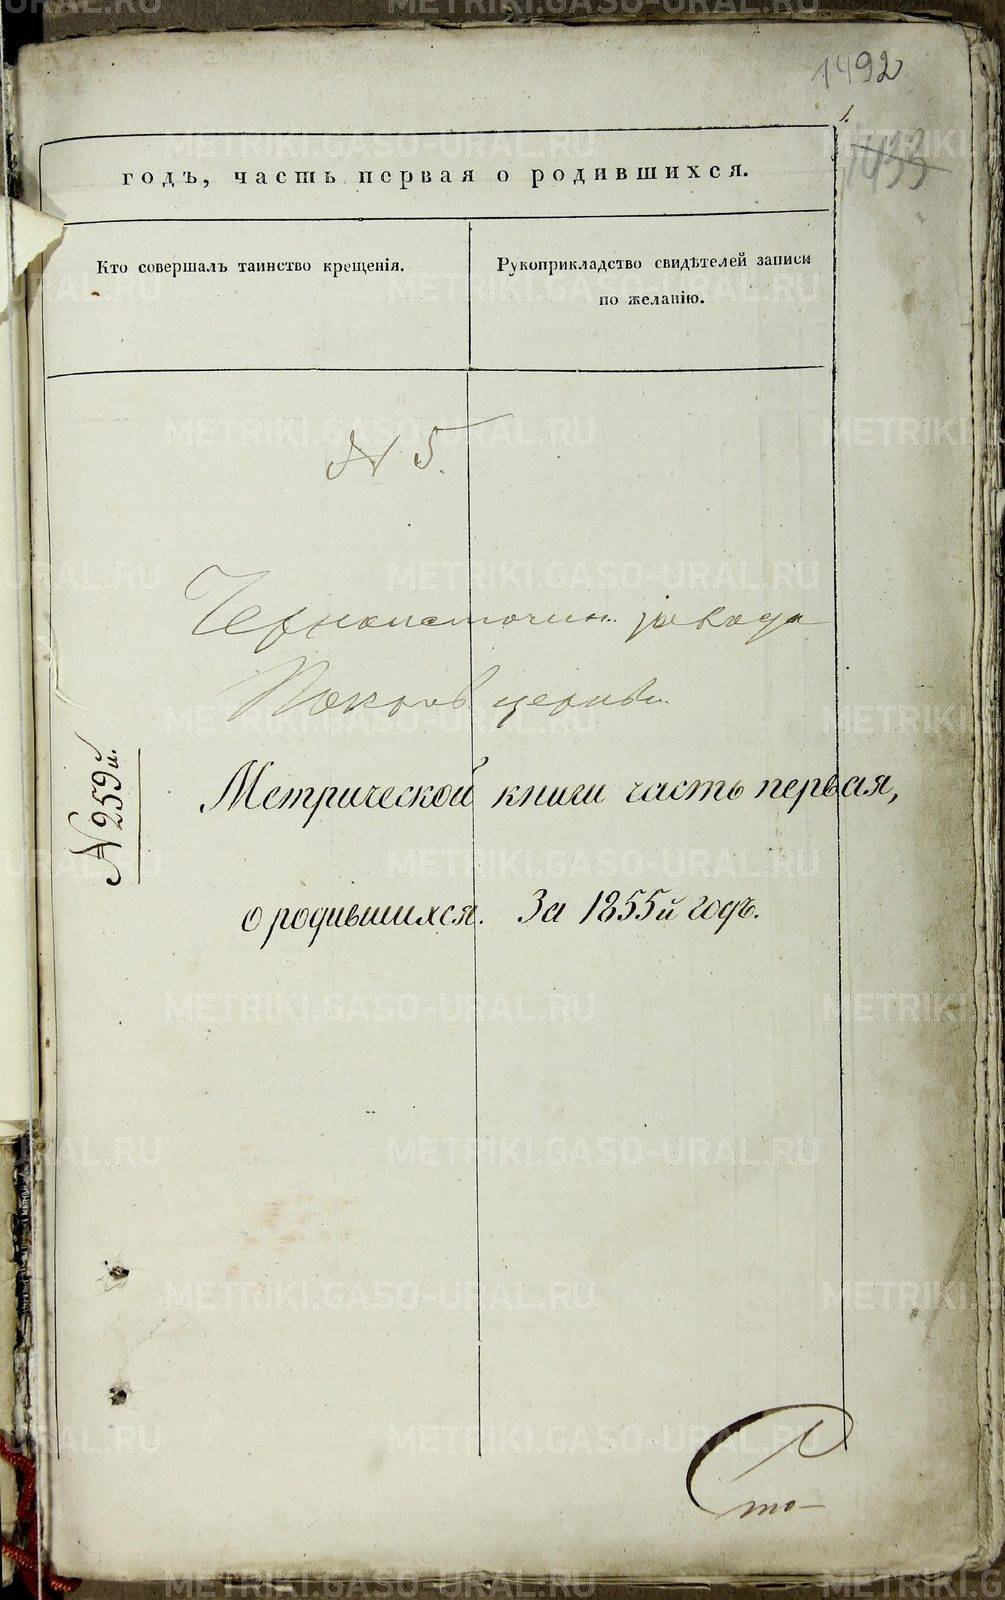 1492
1.
1433
годъ, часть первая о родившихся.
Кто совершалъ таинство крещенія.
Рукоприкладство свидѣтелей записи
по желанію.
N 5.
Черноисточин. завода
Покров. церкви.
N 259й.
Метрической книги часть первая,
о родившихся. За 1855й годъ.
Сто
METRIKI.GASO-URAL.RU